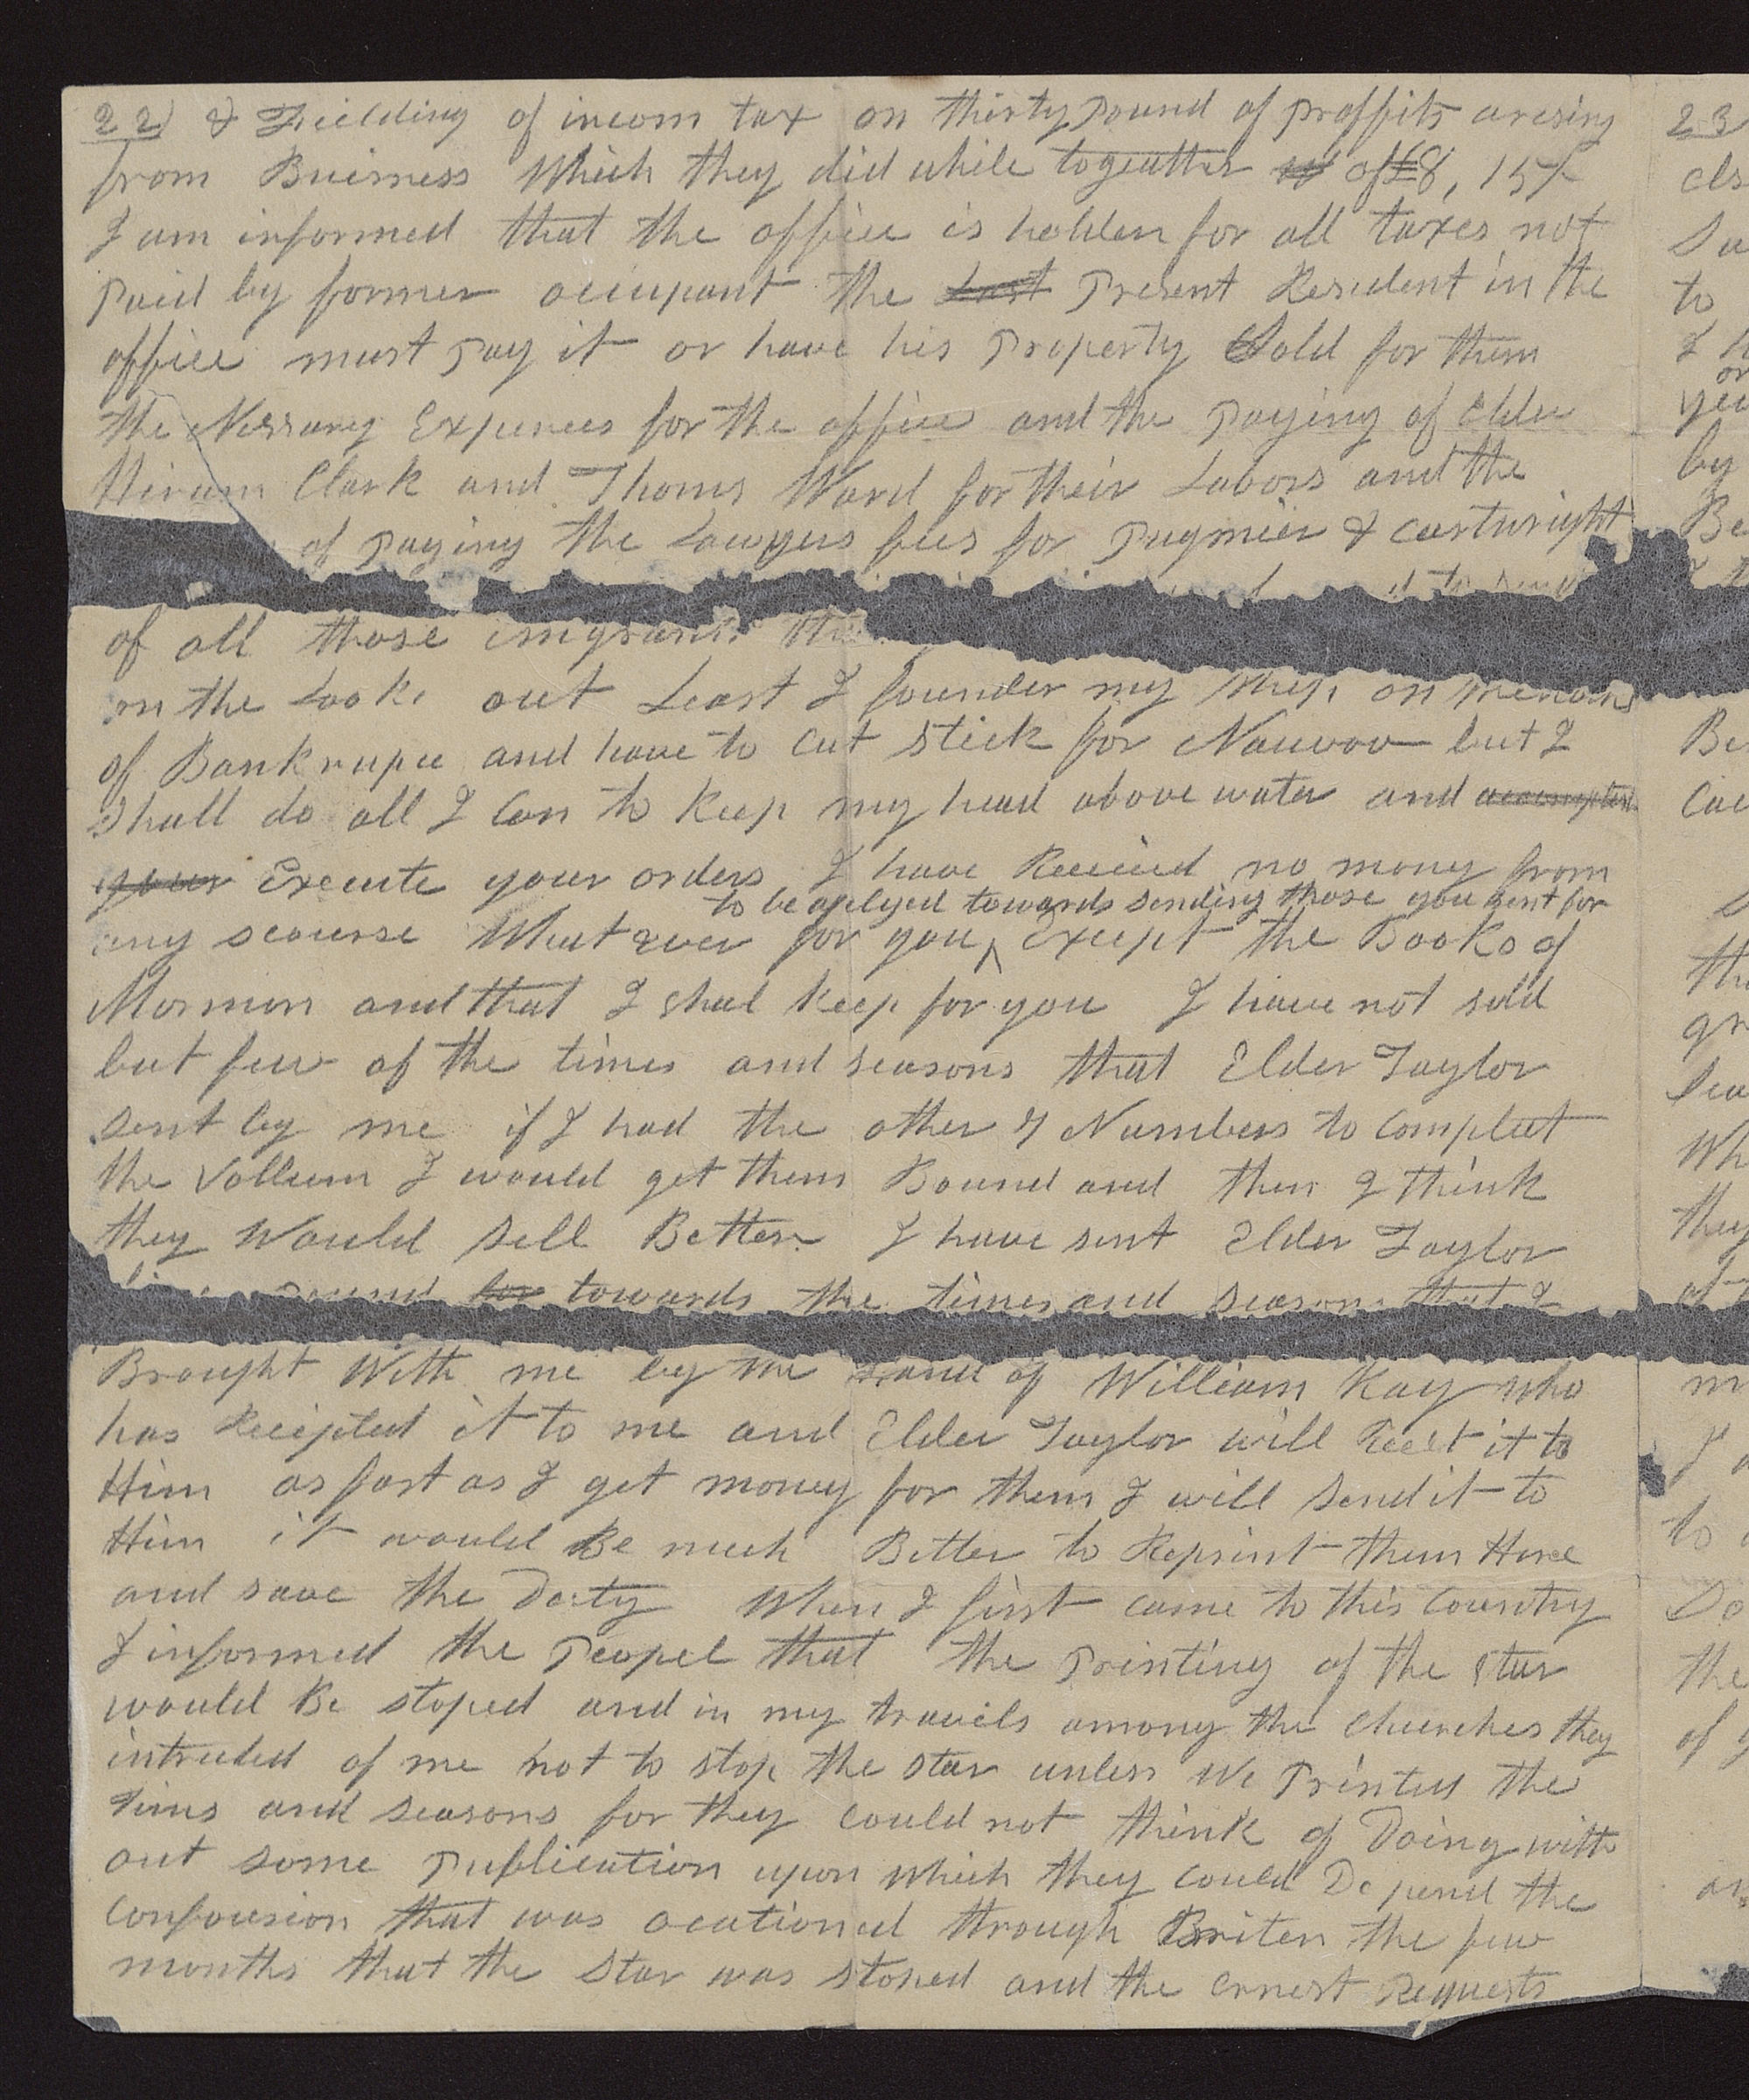 22) & Fielding of incom tax on thirty Pound of proffits aresing
from Buisness Which they did while togeather of £8, 15/-
I am informed that the office is holden for all taxes not
Paid by former occupant the Last Present Resident in the
office must Pay it or have his Property Sold for them
the Nessary Expences for the office and the Paying of Elder
Hiram Clark and Thoms Ward for their Labors and the
of Paying the Lawyers fees for Pugmier & Cartwright
of all those emigrants the
on the Look out Least I founder my Ship on the
of Bankrupce and have to Cut Stick for Nauvoo but I
Shall do all I Can to Keep my head above water and
your Execute your orders I have Receied no mony from
to be aplyed towards sending those you sent for
any scourse What ever for you Except the Books of
Mormon and that I shal Keep for you I have not sold
but few of the times and seasons that Elder Taylor
Sent by me if I had the other 7 Numbers to Compleet
the Vollum I would get them Bound and then I think
they Would Sell Better I have sent Elder Taylor
Pound for towards the times and seasons that I
Brought With me by the hand of William Kay who
has Recipted it to me and Elder Taylor will it to
Him as fast as I get money for them I will Send it to
Him it would Be much Better to Reprint them Here
and save the Duty When I first came to this Country
I informed the Peopel that the Printing of the Star
would Be stoped and in my travels among the Churches they
intreded of me not to stop the Star unless We Printed the
Tims and Seasons for they could not think of Doing with
out some Publication upon which they Could Depend the
Confousion that was ocationed through Briten the few
months that the Star was stoped and the ernest Requests
23
to
by
Be
the
they
of
to
the
of